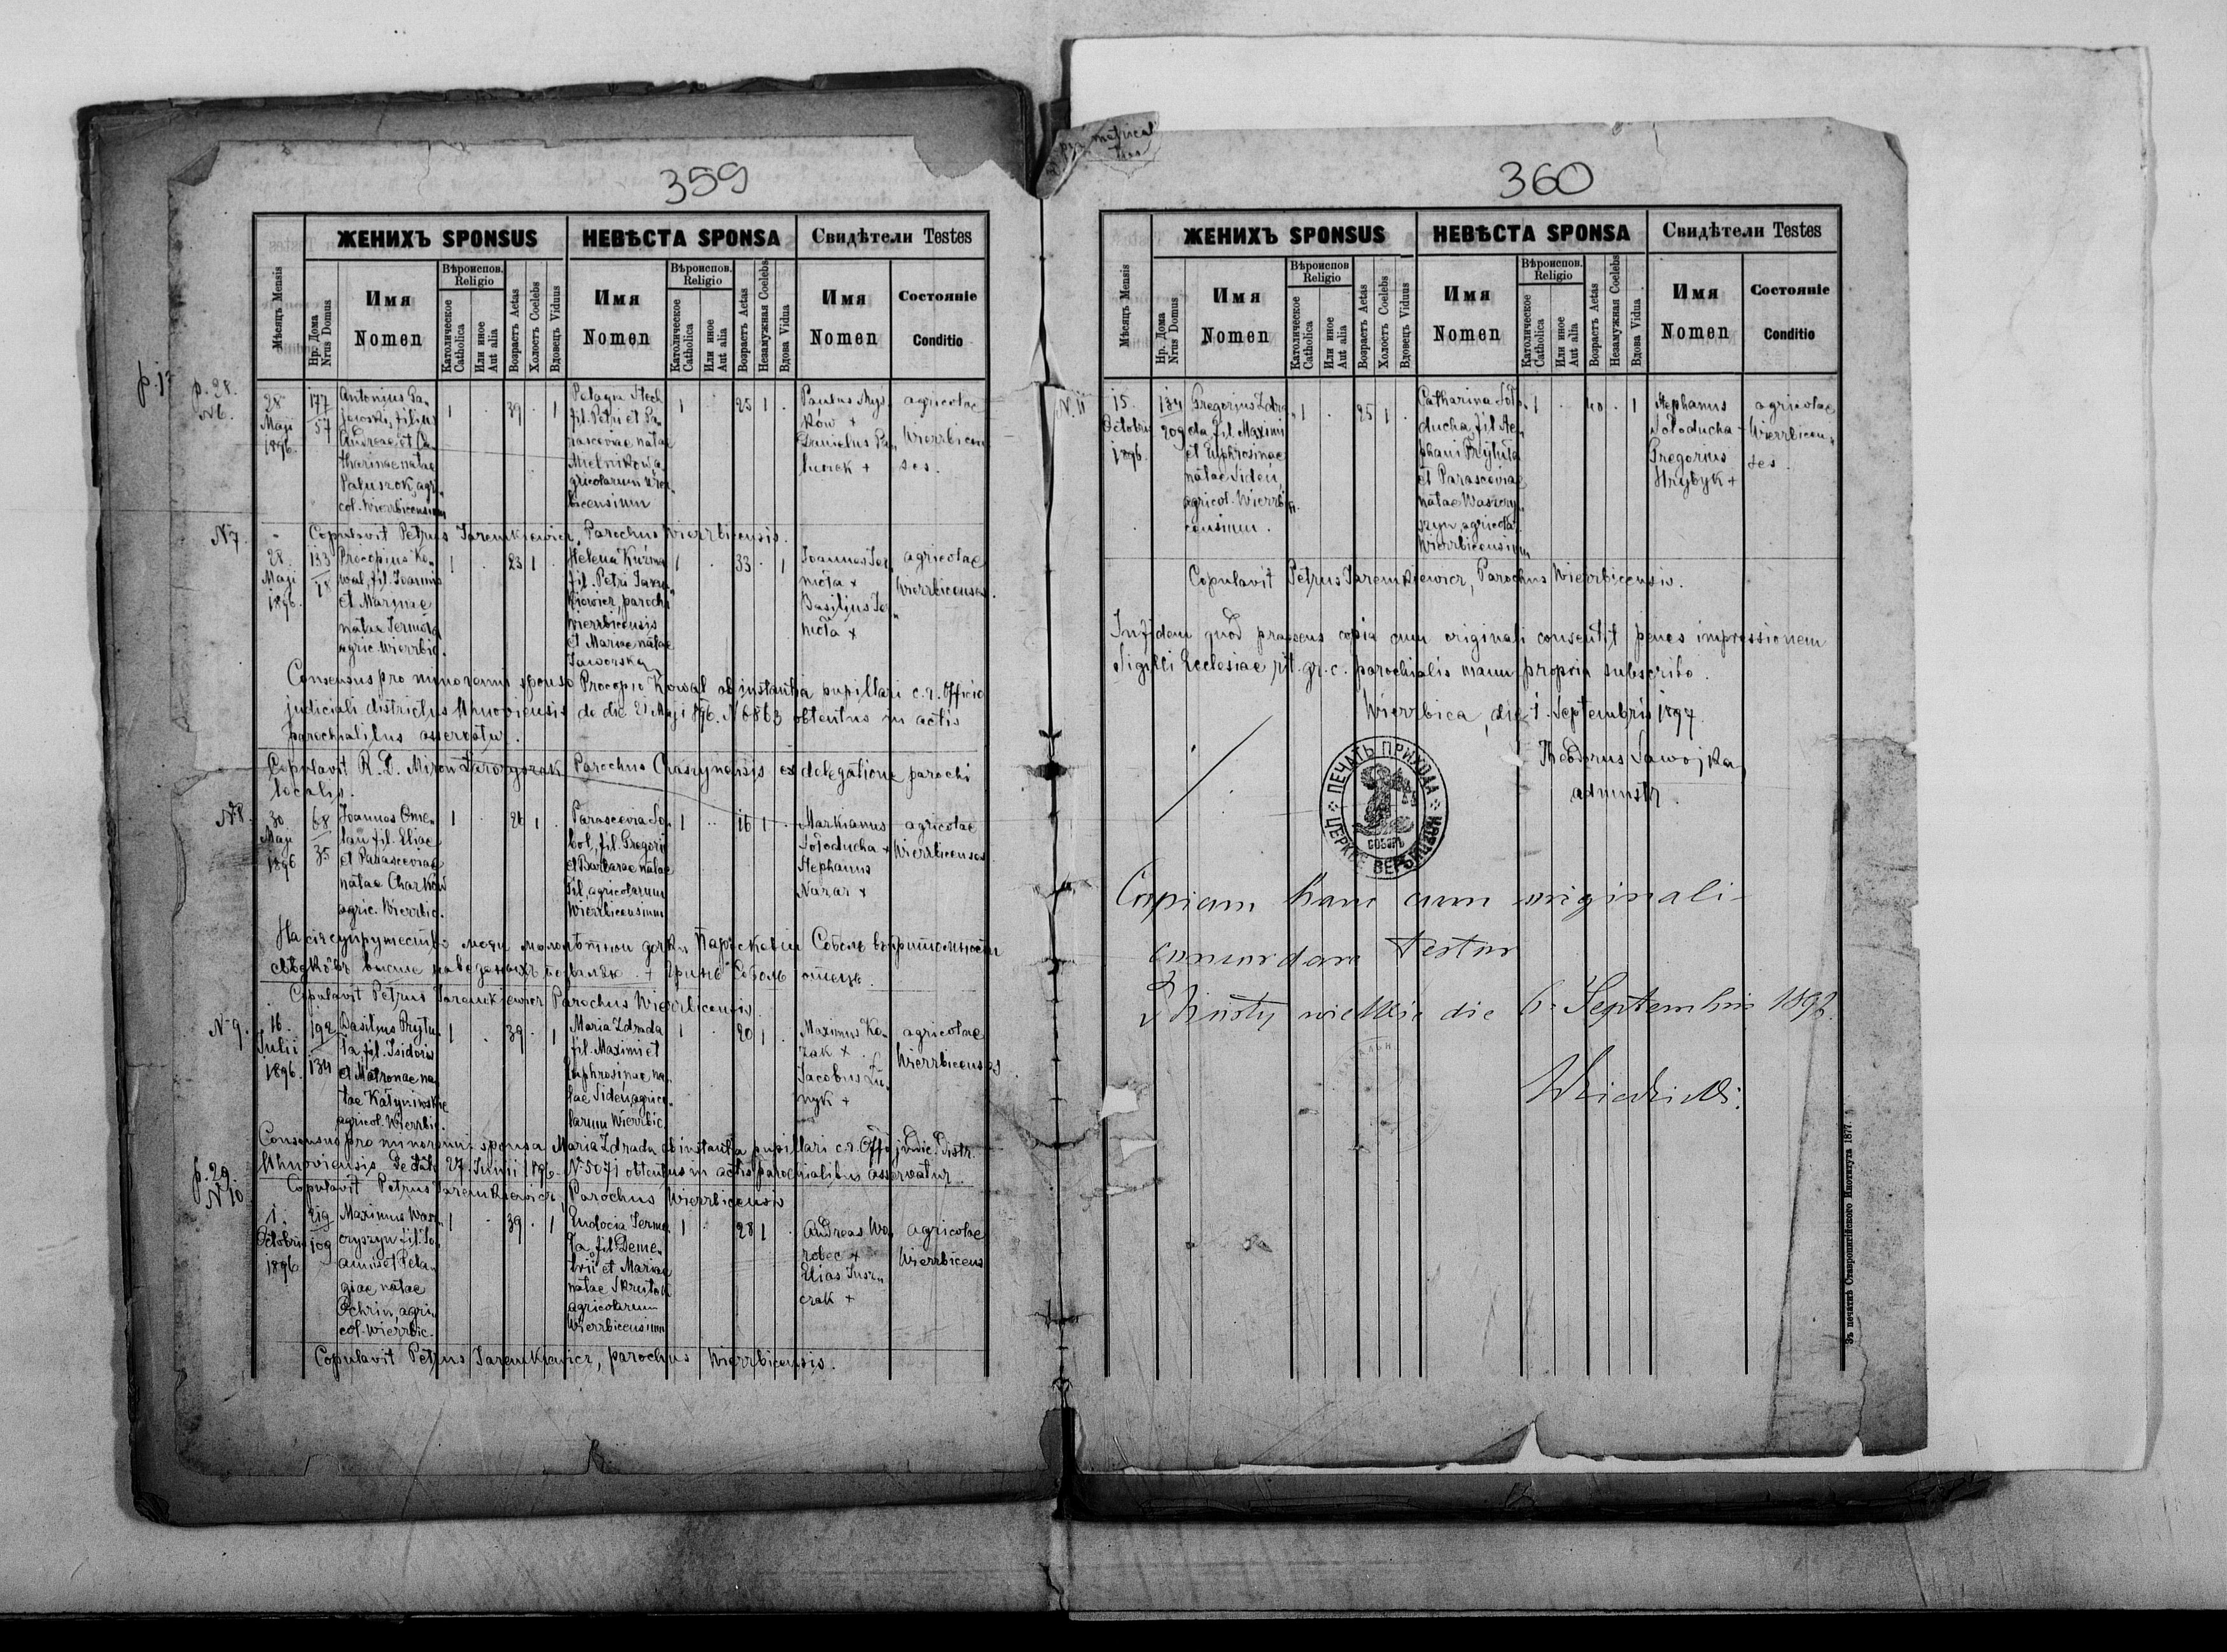 359
ЖЕНИХЪ SPONSUS
НЕВѢСТА SPONSA
Свидѣтели Testes
Мѣсяцъ Mensis
Нр. Дома
Nrus Domus
Имя
Nomen
Вѣроиспов.
Religio
Католическое
Catholica
Или иное
Aut alia
Возрастъ Aetas
Холостъ Coelebs
Вдовецъ Viduus
Имя
Nomen
Вѣроиспов.
Religio
Католическое
Catholica
Или иное
Aut alia
Возрастъ Aetas
Незамужная Coelebs
Вдова Vidua
Имя
Nomen
Состояніе
Conditio
p. 28.
N6.
28
Maji
1896.
177
57
Antonius
filius
Andreae et Ca-
tharinae natae
Paluszok, agri-
col. Wierzbicensium
1 . 39 . 1
Pelagia Stech
fil. Petri et Pa-
rasceviae natae
Mielnikowa
agricolarum Wierz-
bicensium
1 . 25 1 .
Paulus Mys-
ków +
Daniel Pa-
luszok +
agricolae
Wierzbicen-
ses.
Copulavit Petrus Jaremkiewicz, Parochus Wierzbicensis.
N7.
28.
Maji
1896.
133
18
Procopius Ko-
wal, fil. Joannis
et Marynae
natae Jermoła
agric. Wierzbic.
1 . 23 1 .
Helena Kuźma
fil. Petri Jarem-
kiewicz, parochi
Wierzbicensis
et Mariae natae
Jaworska
1 . 33 . 1
Joannes Jer-
moła +
Basilius Jer-
moła +
agricolae
Wierzbicenses.
Consensus pro minorenni sponso Procopio Kowal ab instantia pupillari c. r. Officio
judiciali districtus Uhnoviensis de die 21 Maji 1896. N 6863 obtentus in actis
parochialibus asservatur.
Copulavit R. D. Miron Parochus ex delegatione parochi
localis.
N8.
30
Maji
1896
68
35
Joannes Ome-
lan fil. Eliae
et Parasceviae
natae Charków
agric. Wierzbic.
1 . 26 1 .
Parascevia So-
bol, fil. Gregorii
et Barbarae natae
Fil, agricolarum
Wierzbicensium
1 . 16 1 .
Markianus
Sołoducha +
Stephanus
Nazar +
agricolae
Wierzbicenses
На сіе супружество моеи малолѣтнои дочки Параскевіи Соболь въ притомности
свѣдкôвъ высше наведеныхъ позваляю. + Гринь Соболь отецъ.
Copulavit Petrus Jaremkiewicz Parochus Wierzbicensis.
N 9.
16.
Julii
1896.
192
134
Basilius Prytu-
ła, fil. Isidoris
et Matronae na-
tae Katyniwskie
agricol. Wierzbic.
1 . 39 . 1
Maria Zdrada
fil. Maximi et
Euphrosinae na-
tae Sideń, agrico-
larum Wierzbic.
1 . 20 1 .
Maximus Ko-
zak +
Jacobus Łu-
nyk +
agricolae
Wierzbicenses.
Consensus pro minorenni sponsa Maria Zdrada ab instantia pupillari c. r. Off. judic. Distr.
Uhnoviensis, de dato 27. Junii 1896. N 5071 obtentus in actis parochialibus asservatur.
Copulavit Petrus Jaremkiewicz, Parochus Wierzbicensis
p. 29.
N 10.
1.
Octobris
1896
219
109
Maximus Wasz-
czyszyn fil. Jo-
annis et Pela-
giae natae
Ochrin, agri-
col. Wierzbic.
1 . 39 . 1
Eudocia Jermo-
ła, fil. Deme-
trii et Mariae
natae Skrutok
agricolarum
Wierzbicensium
1 . 28 1 .
Andreas Wo-
robec +
Elias Jusz-
czak +
agricolae
Wierzbicens
Copulavit Petrus Jaremkiewicz, parochus Wierzbicensis.
360
ЖЕНИХЪ SPONSUS
НЕВѢСТА SPONSA
Свидѣтели Testes
Мѣсяцъ Mensis
Нр. Дома
Nrus Domus
Имя
Nomen
Вѣроиспов
Religio
Католическое
Catholica
Или иное
Aut alia
Возрастъ Aetas
Холостъ Coelebs
Вдовецъ Viduus
Имя
Nomen
Вѣроиспов.
Religio
Католическое
Catholica
Или иное
Aut alia
Возрастъ Aetas
Незамужная Coelebs
Вдова Vidua
Имя
Nomen
Состояніе
Conditio
N. 11
15.
Octobris
1896.
134
209
Gregorius Zdra-
da, fil. Maximi
et Euphrosinae
natae Sideń,
agricol. Wierzbi-
censium.
1 . 25 1 .
Catharina Soło-
ducha, fil. Ste-
phani Prytuła
et Parasceviae
natae Waszczy-
szyn, agricola.
Wierzbicensium
1 . 40 . 1
Stephanus
Sołoducha
Gregorius
Hrybyk +
agricolae
Wierzbicen-
ses.
Copulavit Petrus Jaremkiewicz, Parochus Wierzbicensis.
In fidem quod praesens copia cum originali consentit penes impressionem
Sigilli Ecclesiae rit. gr. c. parochialis manu propria subscribo.
Wierzbica, die 1. Septembris 1897.
Theodorus Sawojka,
administr.
ПЕЧАТЬ ПРИХОДА
ЦЕРКВЕ
Copiam hanc cum originali
concordare testor
die 6. Septembris 1897.
Зъ печатнѣ Ставропигійского Института 1877.